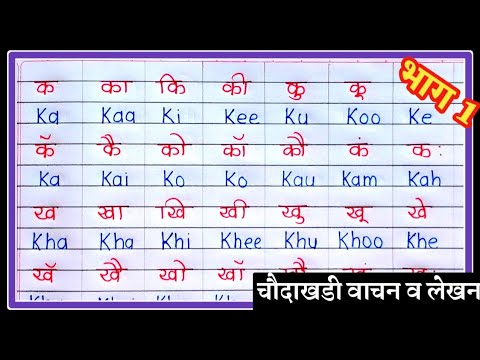 भाग 1
क का कि की कु कू
Ka Kaa Ki Kee Ku Koo Ke
कॅ कै को कॉ कौ कं कः
Ka Kai Ko Ko Kau Kam Kah
ख खा खि खी खु खू खे
Kha Kha Khi Khee Khu Khoo Khe
खॅ खै खो खॉ
चौदाखडी वाचन व लेखन